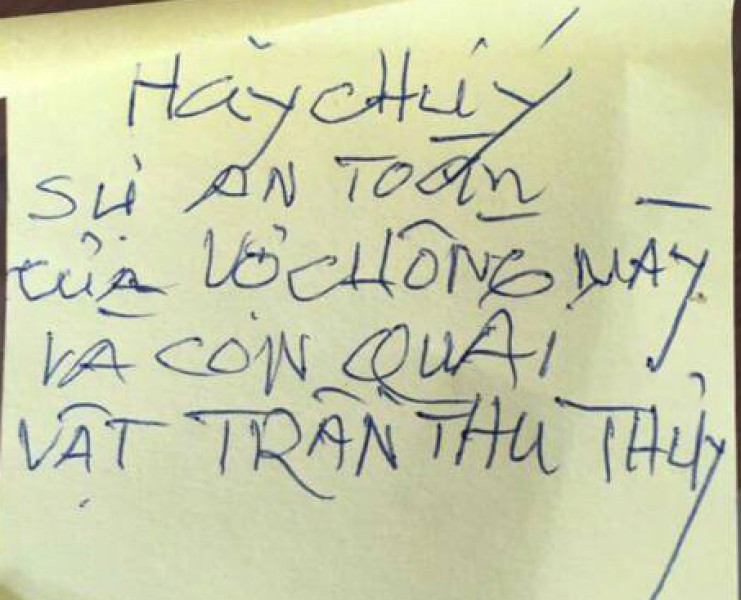 Hãy CHÚ Ý
SỰ AN TOÀN
CỦA VỢ CHỒNG MÀY
VÀ CON QUÁI
VẬT TRẦN THU THỦY